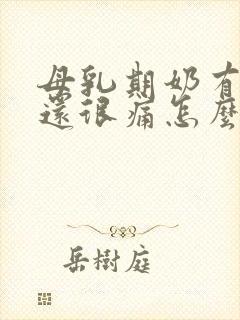 母乳期奶有
還很痛怎麼
岳樹庭